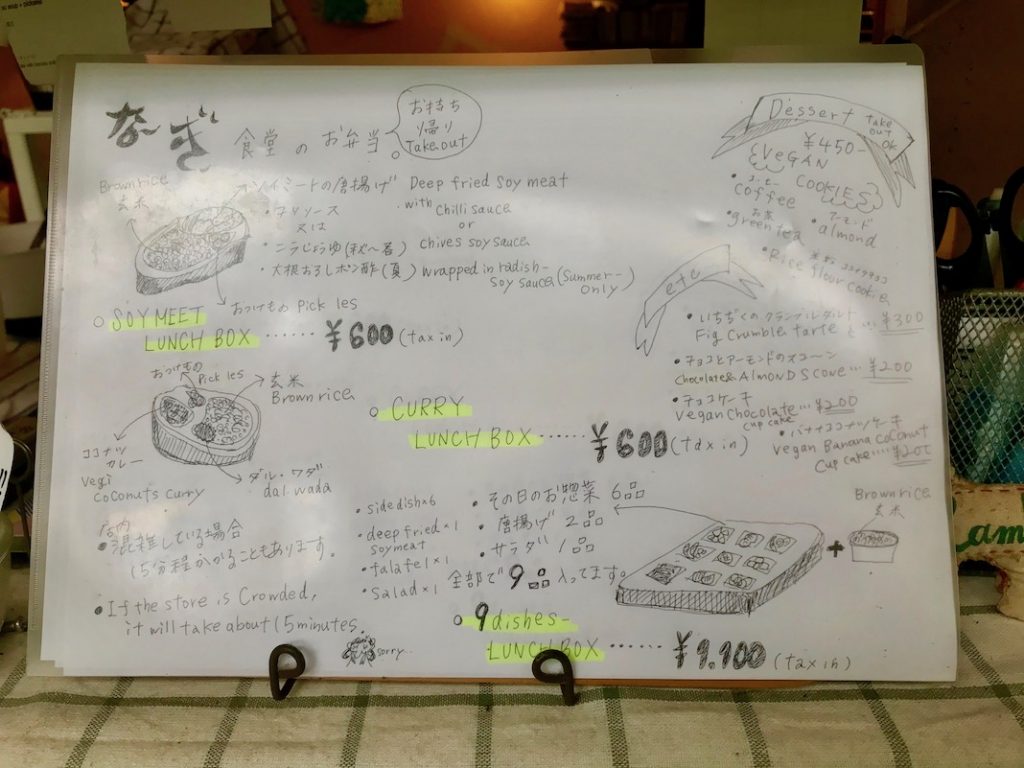 な〜ぎ 食堂 の お弁当。
お持ち
帰り
Take out
Brown rice
玄米
ソイミートの唐揚げ Deep fried soy meat
with Chilli sauce
又は or
・ニラじょうゆ(秋〜春) chives soy sauce
・大根おろしポン酢(夏) wrapped in radish-
soy sauce (Summer-
only)
おつけもの Pickles
○ SOY MEET
LUNCH BOX ...... ¥600 (tax in)
おつけもの
Pickles
玄米
Brown rice
ココナツ
カレー
Vegi
coconuts curry
ダル・ワダ
dal wada
○ CURRY
LUNCH BOX ...... ¥600 (tax in)
店内
混雑している場合
15分程かかることもあります。
● If the store is Crowded,
it will take about 15 minutes.
sorry..
・side dish×6
・deep fried×1
soy meat
・falafel×1
・Salad×1
・その日のお惣菜 6品
・唐揚げ 2品
・サラダ 1品
全部で 9品 入ってます。
Brown rice
玄米
+
○ 9 dishes-
LUNCH BOX ...... ¥1.100 (tax in)
Dessert take
out
OK
¥450-
VEGAN
COOKIES
・コーヒー
coffee
・お茶
green tea
・アーモンド
almond
・Rice flour cookie
etc
・いちぢくのクランブルタルト
Fig crumble tarte ... ¥300
・チョコとアーモンドのスコーン
Chocolate & ALMOND Scone... ¥200
・チョコケーキ
Vegan Chocolate... ¥200
cup cake
・バナナココナツケーキ
Vegan Banana coconut
Cup cake..... ¥200